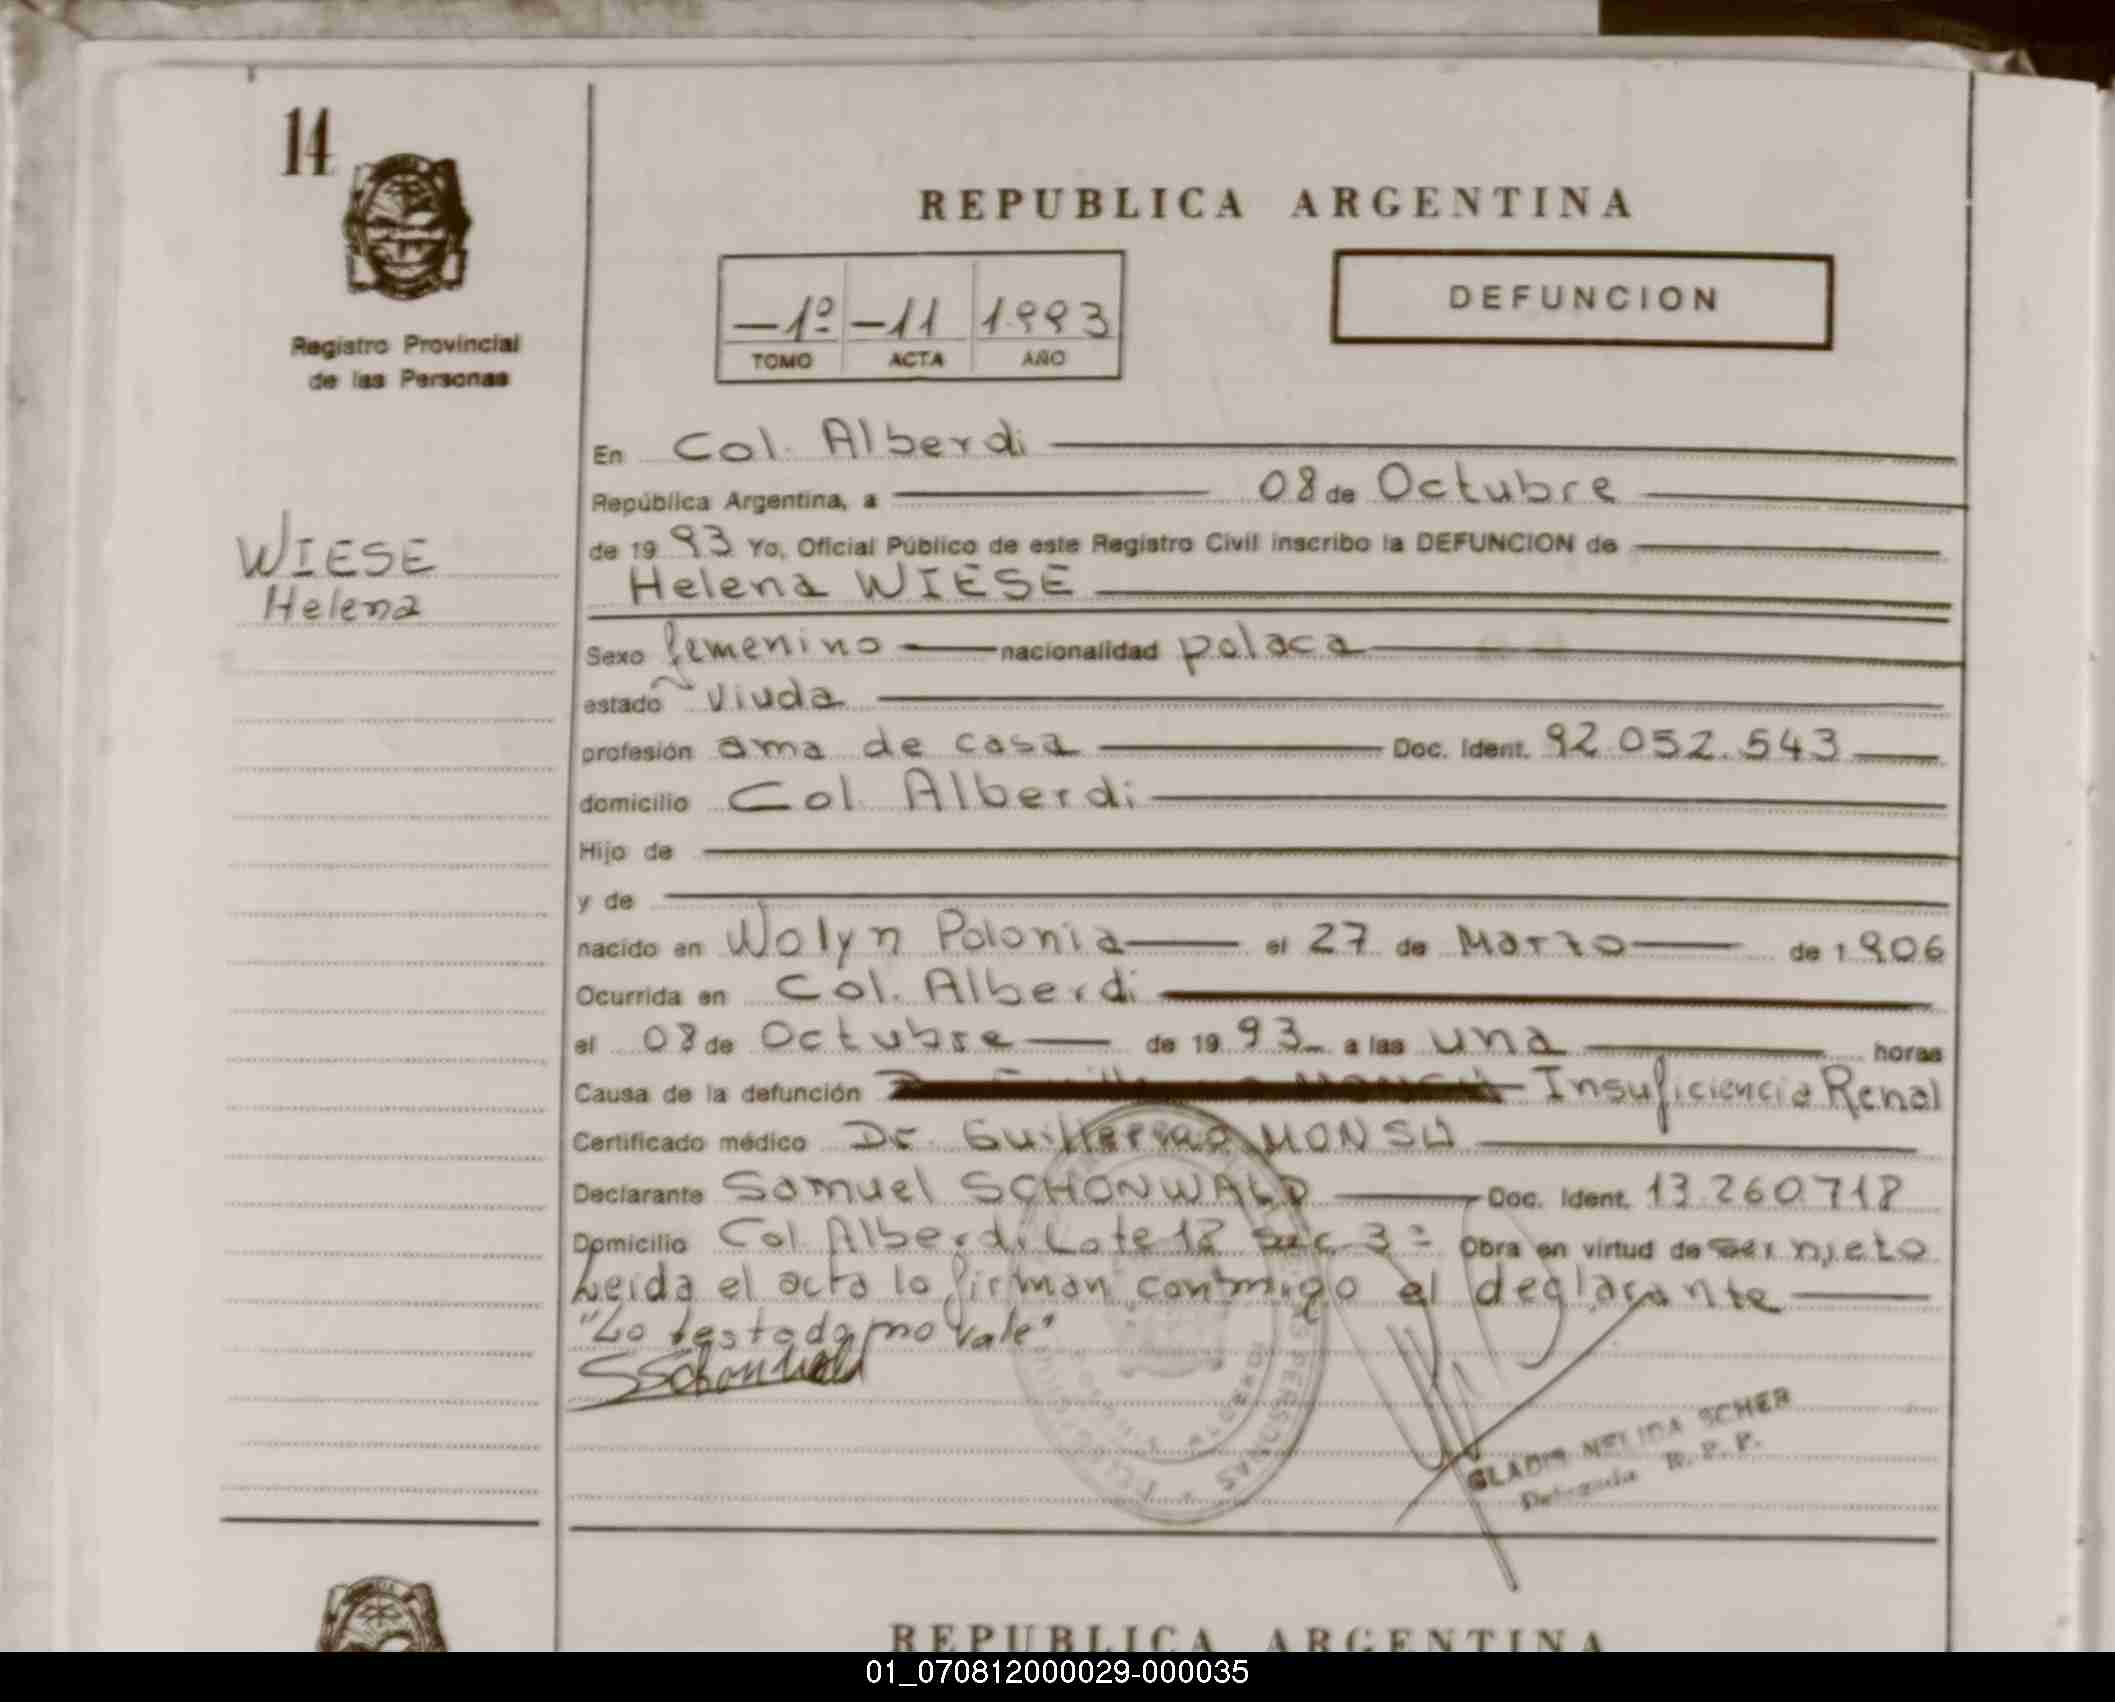 14
REPUBLICA ARGENTINA
DEFUNCION
—1º —11 1993
TOMO ACTA AÑO
Registro Provincial
de las Personas
WIESE
Helena
En Col. Alberdi
República Argentina, a 08 de Octubre
de 1993 Yo, Oficial Público de este Registro Civil inscribo la DEFUNCION de
Helena WIESE
Sexo femenino nacionalidad polaca
estado viuda
profesión ama de casa Doc. Ident. 92.052.543
domicilio Col Alberdi
Hijo de
y de
nacido en Wolyn Polonia el 27 de Marzo de 1906
Ocurrida en Col. Alberdi
el 08 de Octubre de 1993 a las una horas
Causa de la defunción Insuficiencia Renal
Certificado médico Dr. Guillermo
Declarante Samuel SCHONWALD Doc. Ident. 13.260.718
Domicilio Col Alberdi Lote 18 sec 3ª Obra en virtud de ser nieto
Leida el acta lo firman conmigo el declarante
"Lo testado no vale"
SSchonwald
GLADIS NELIDA SCHER
Delegada R. P. P.
REPUBLICA ARGENTINA
01_070812000029-000035